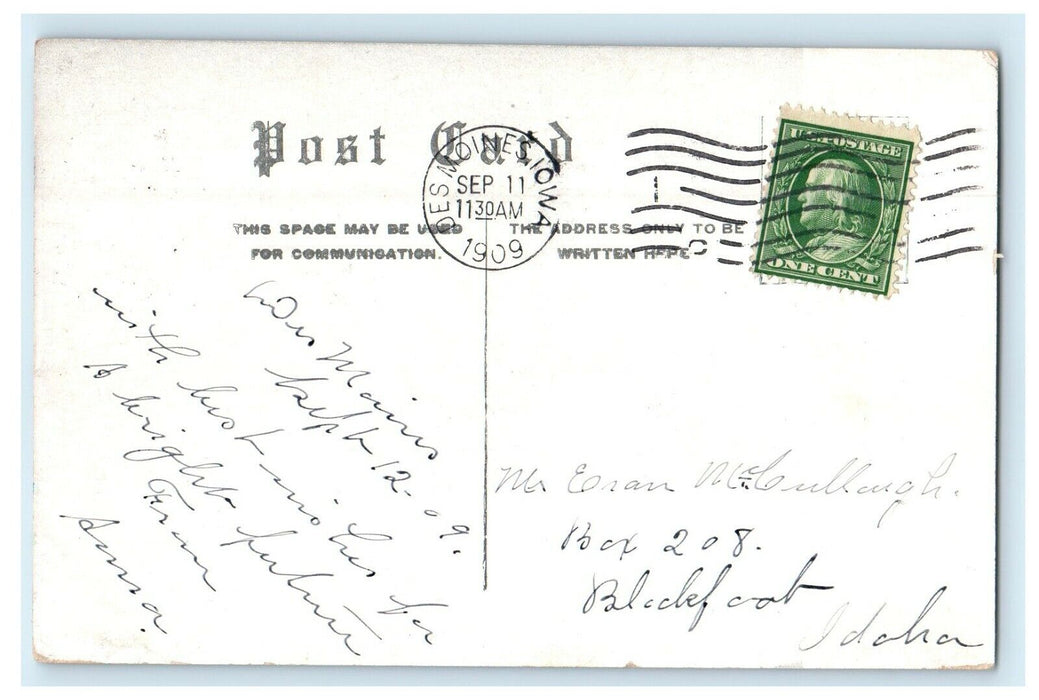 Post Card
DES MOINES, IOWA
SEP 11
1130AM
1909
U.S. POSTAGE
ONE CENT
THIS SPACE MAY BE USED
FOR COMMUNICATION.
THE ADDRESS ONLY TO BE
WRITTEN HERE
Des Moines
Sept 12-09.
with best wishes for
A bright future
From
Anna.
Mr Evan McCullough.
Box 208.
Blackfoot
Idaho